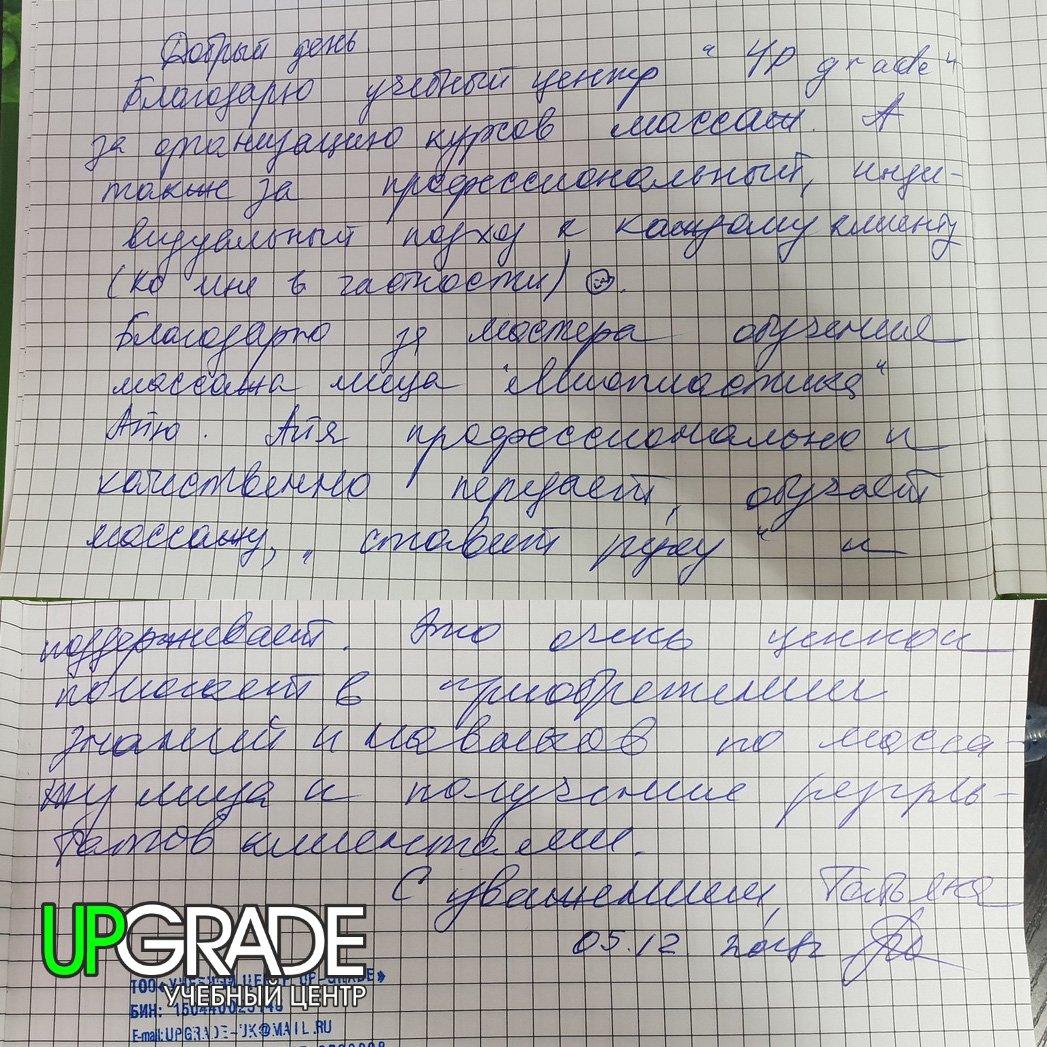 Добрый день.
Благодарю учебный центр "Up grade"
за организацию курсов массаж. А
также за профессиональный, инди-
видуальный подход к каждому клиенту
(ко мне в частности) ☺.
Благодарю за мастера обучения
массажа лица "Миопластика"
Айю. Айя профессионально и
качественно передаёт, обучает
массажу, "ставит руку" и
поддерживает. Это очень ценно и
помогает в приобретении
знаний и навыков по масса-
жу лица и получение резуль-
татов клиентами.
С уважением, Татьяна
05.12
UPGRADE
УЧЕБНЫЙ ЦЕНТР
ТОО «УЧЕБНЫЙ ЦЕНТР UP-GRADE»
БИН:
E-mail:UPGRADE-UK@MAIL.RU